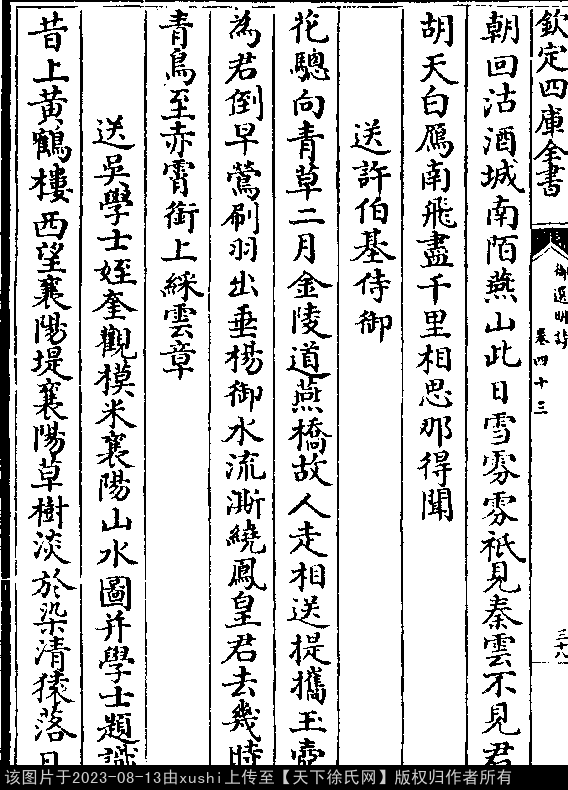 欽定四庫全書
御選明詩
卷四十三
三十八
朝回沽酒城南陌燕山此日雪雰雰祇見秦雲不見君
胡天白鴈南飛盡千里相思那得聞
送許伯基侍御
花驄向青草二月金陵道燕橋故人走相送提攜玉壺
為君倒早鶯刷羽出垂楊御水流澌繞鳳皇君去幾時
青鳥至赤霄銜上綵雲章
送吳學士姪奎觀模米襄陽山水圖并學士題識
昔上黃鶴樓西望襄陽堤襄陽草樹淡於染清猿落日
该图片于2023-08-13由xushi上传至【天下徐氏网】版权归作者所有